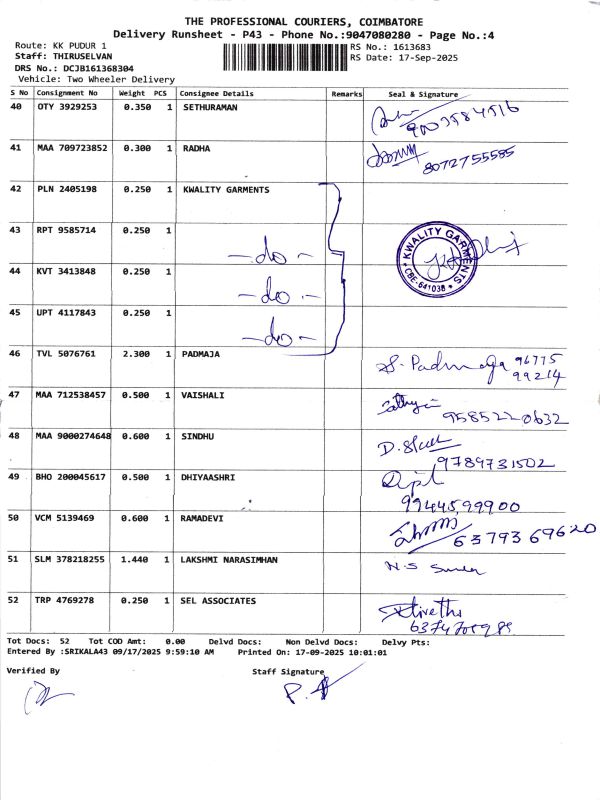 THE PROFESSIONAL COURIERS, COIMBATORE
Delivery Runsheet - P43 - Phone No.:9047080280 - Page No.:4
Route: KK PUDUR 1
RS No.: 1613683
Staff: THIRUSELVAN
RS Date: 17-Sep-2025
DRS No.: DCJB161368304
Vehicle: Two Wheeler Delivery
S No Consignment No Weight PCS Consignee Details Remarks Seal & Signature
40 OTY 3929253 0.350 1 SETHURAMAN
41 MAA 709723852 0.300 1 RADHA 8072755585
42 PLN 2405198 0.250 1 KWALITY GARMENTS
43 RPT 9585714 0.250 1
-do-
KWALITY GARMENTS
CBE-641038
44 KVT 3413848 0.250 1
-do-
45 UPT 4117843 0.250 1
-do-
46 TVL 5076761 2.300 1 PADMAJA
S. Padmaja 96775
99214
47 MAA 712538457 0.500 1 VAISHALI
9585220632
48 MAA 9000274648 0.600 1 SINDHU
9789731502
49 BHO 200045617 0.500 1 DHIYAASHRI
9944599900
50 VCM 5139469 0.600 1 RAMADEVI
6379369620
51 SLM 378218255 1.440 1 LAKSHMI NARASIMHAN
N.S
52 TRP 4769278 0.250 1 SEL ASSOCIATES
Tot Docs: 52 Tot COD Amt: 0.00 Delvd Docs: Non Delvd Docs: Delvy Pts:
Entered By :SRIKALA43 09/17/2025 9:59:10 AM Printed On: 17-09-2025 10:01:01
Verified By
Staff Signature